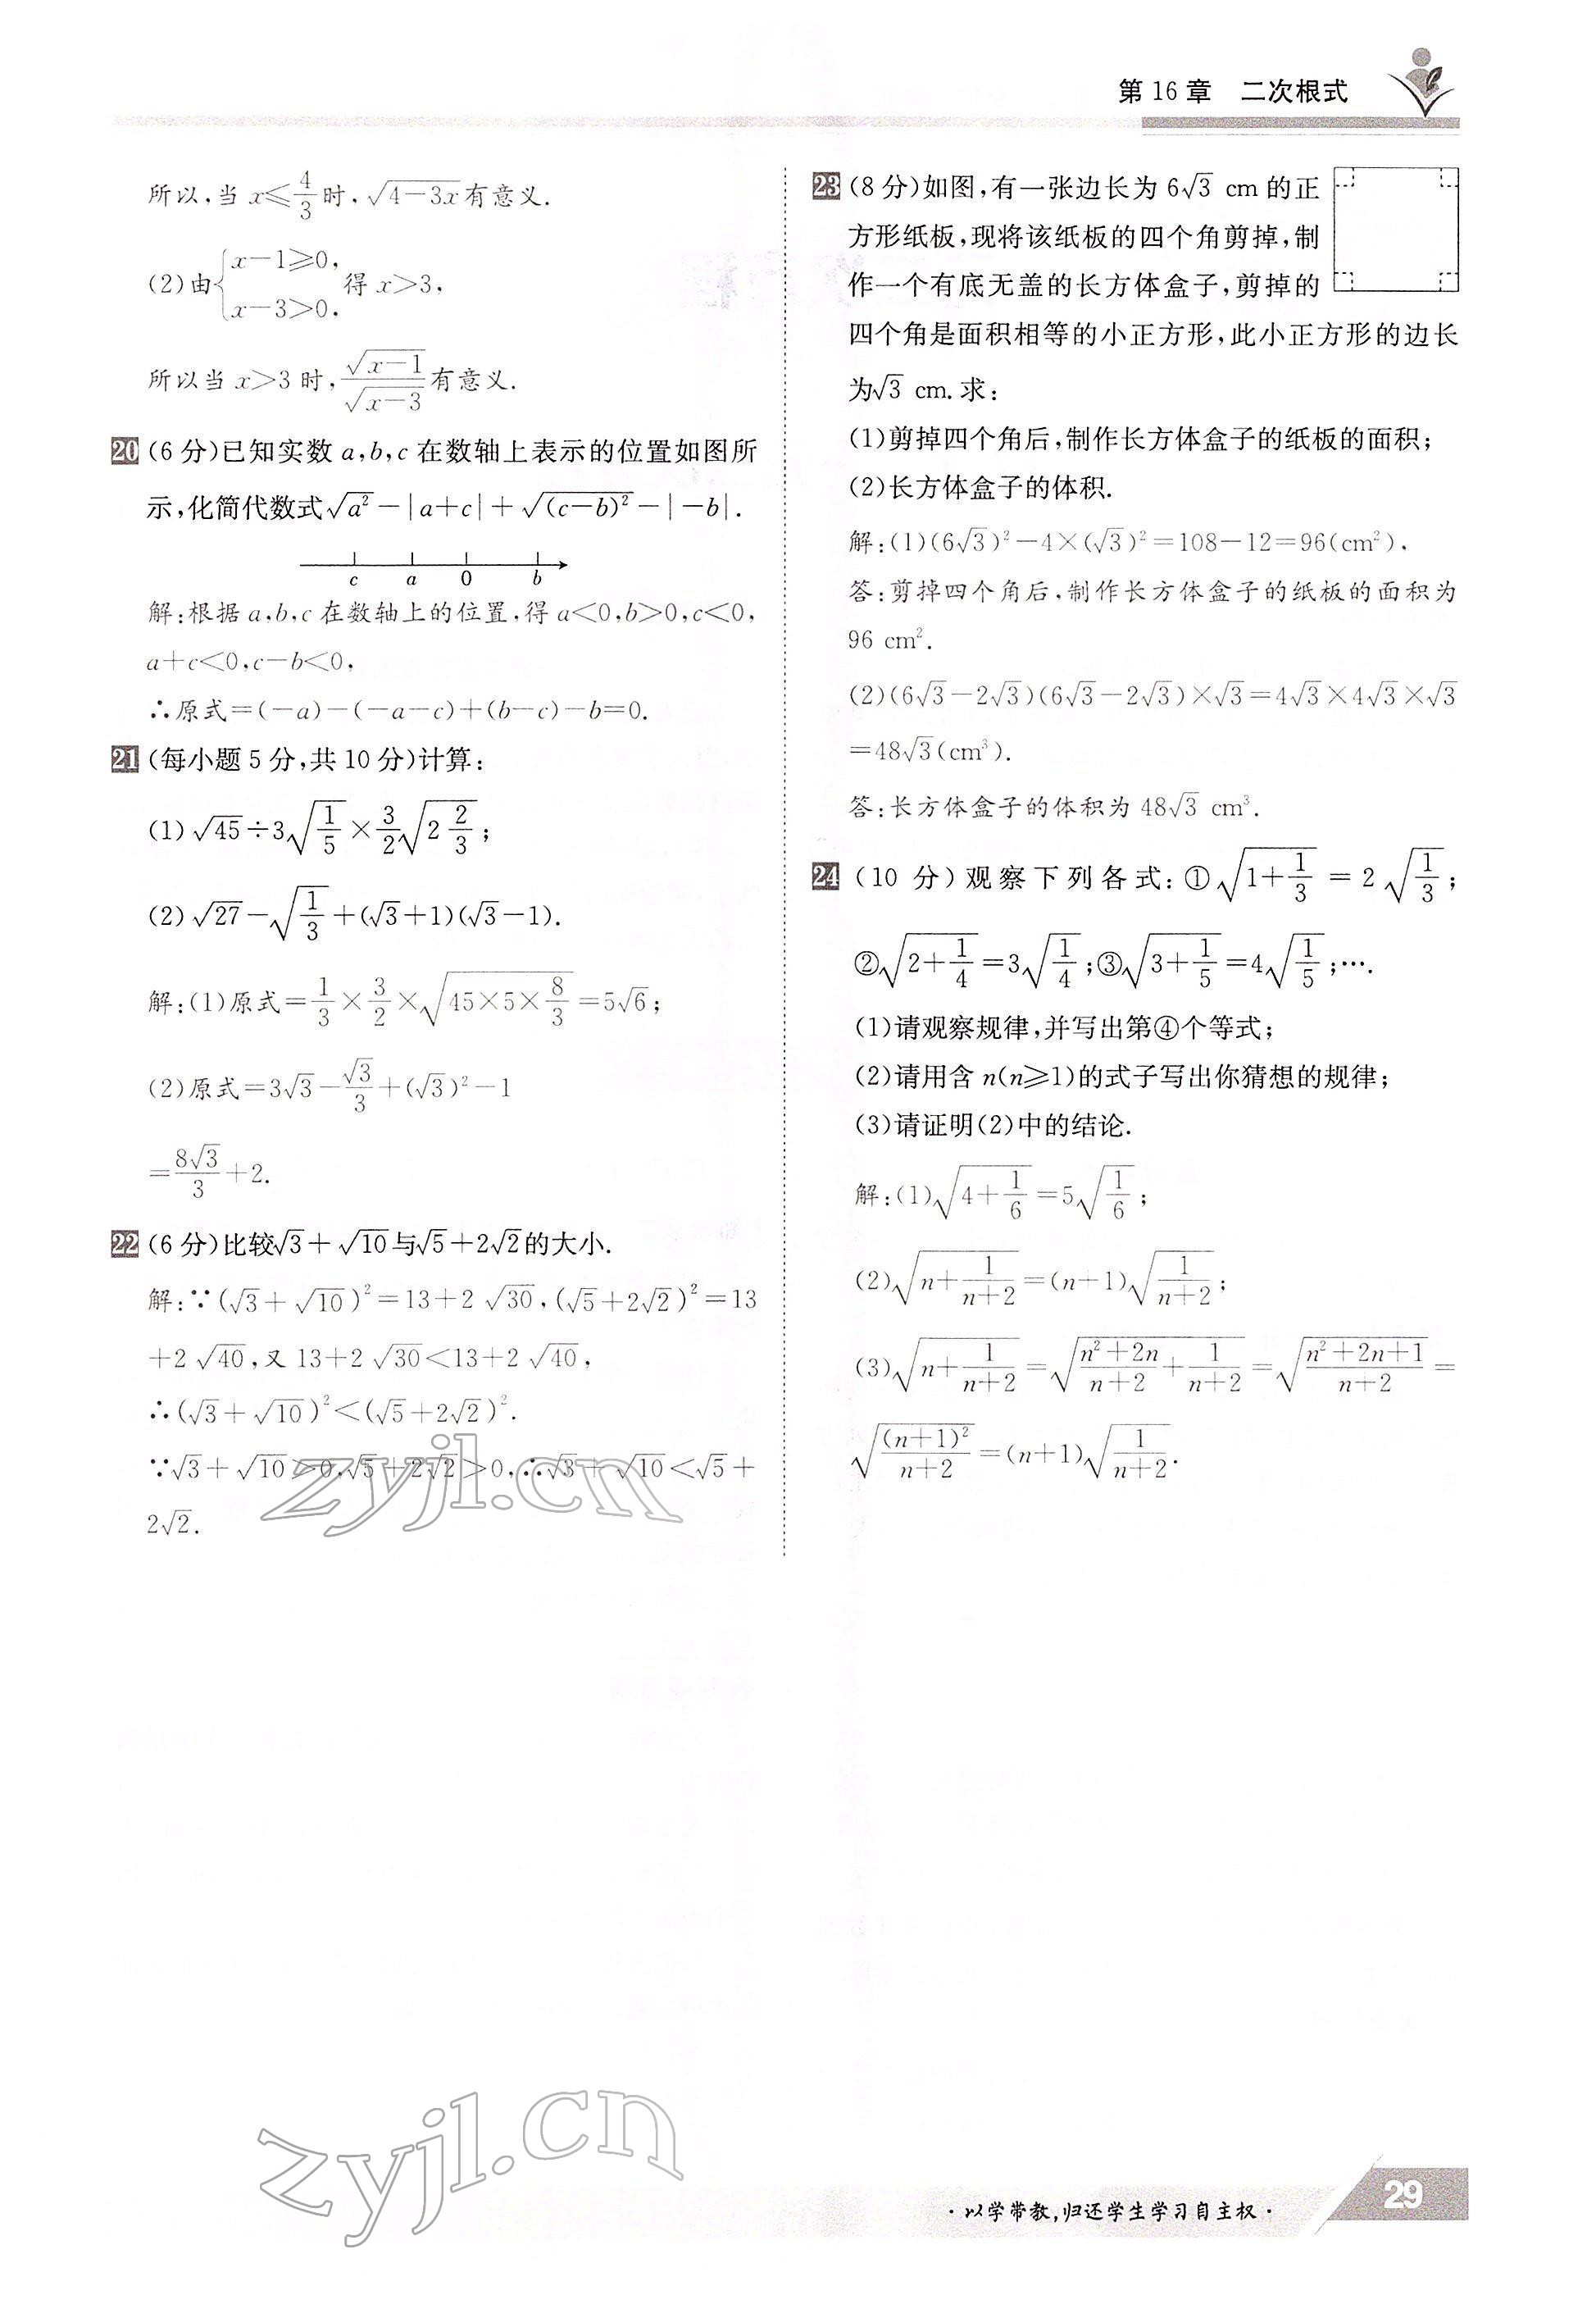 第 16 章 二次根式
所以,当 x≤4/3 时,√(4-3x) 有意义.
(2)由{x-1≥0, x-3>0. 得 x>3,
所以当 x>3 时,√(x-1)/√(x-3) 有意义.
20 (6 分)已知实数 a,b,c 在数轴上表示的位置如图所
示,化简代数式√(a²)-|a+c|+√((c-b)²)-|-b|.
c a 0 b
解:根据 a,b,c 在数轴上的位置,得 a<0,b>0,c<0,
a+c<0,c-b<0,
∴原式=(-a)-(-a-c)+(b-c)-b=0.
21 (每小题 5 分,共 10 分)计算:
(1)√45÷3√(1/5)×3/2√(2 2/3);
(2)√27-√(1/3)+(√3+1)(√3-1).
解:(1)原式=1/3×3/2×√(45×5×8/3)=5√6;
(2)原式=3√3-√3/3+(√3)²-1
=8√3/3+2.
22 (6 分)比较√3+√10与√5+2√2的大小.
解:∵(√3+√10)²=13+2√30,(√5+2√2)²=13
+2√40,又 13+2√30<13+2√40,
∴(√3+√10)²<(√5+2√2)².
∵√3+√10>0,√5+2√2>0,∴√3+√10<√5+
2√2.
23 (8 分)如图,有一张边长为 6√3 cm 的正
方形纸板,现将该纸板的四个角剪掉,制
作一个有底无盖的长方体盒子,剪掉的
四个角是面积相等的小正方形,此小正方形的边长
为√3 cm.求:
(1)剪掉四个角后,制作长方体盒子的纸板的面积;
(2)长方体盒子的体积.
解:(1)(6√3)²-4×(√3)²=108-12=96(cm²),
答:剪掉四个角后,制作长方体盒子的纸板的面积为
96 cm².
(2)(6√3-2√3)(6√3-2√3)×√3=4√3×4√3×√3
=48√3(cm³).
答:长方体盒子的体积为 48√3 cm³.
24 (10 分)观察下列各式:①√(1+1/3)=2√(1/3);
②√(2+1/4)=3√(1/4);③√(3+1/5)=4√(1/5);….
(1)请观察规律,并写出第④个等式;
(2)请用含 n(n≥1)的式子写出你猜想的规律;
(3)请证明(2)中的结论.
解:(1)√(4+1/6)=5√(1/6);
(2)√(n+1/(n+2))=(n+1)√(1/(n+2));
(3)√(n+1/(n+2))=√((n²+2n)/(n+2)+1/(n+2))=√((n²+2n+1)/(n+2))=
√((n+1)²/(n+2))=(n+1)√(1/(n+2)).
zyjl.cn
zyjl.cn
·以学带教,归还学生学习自主权·
29